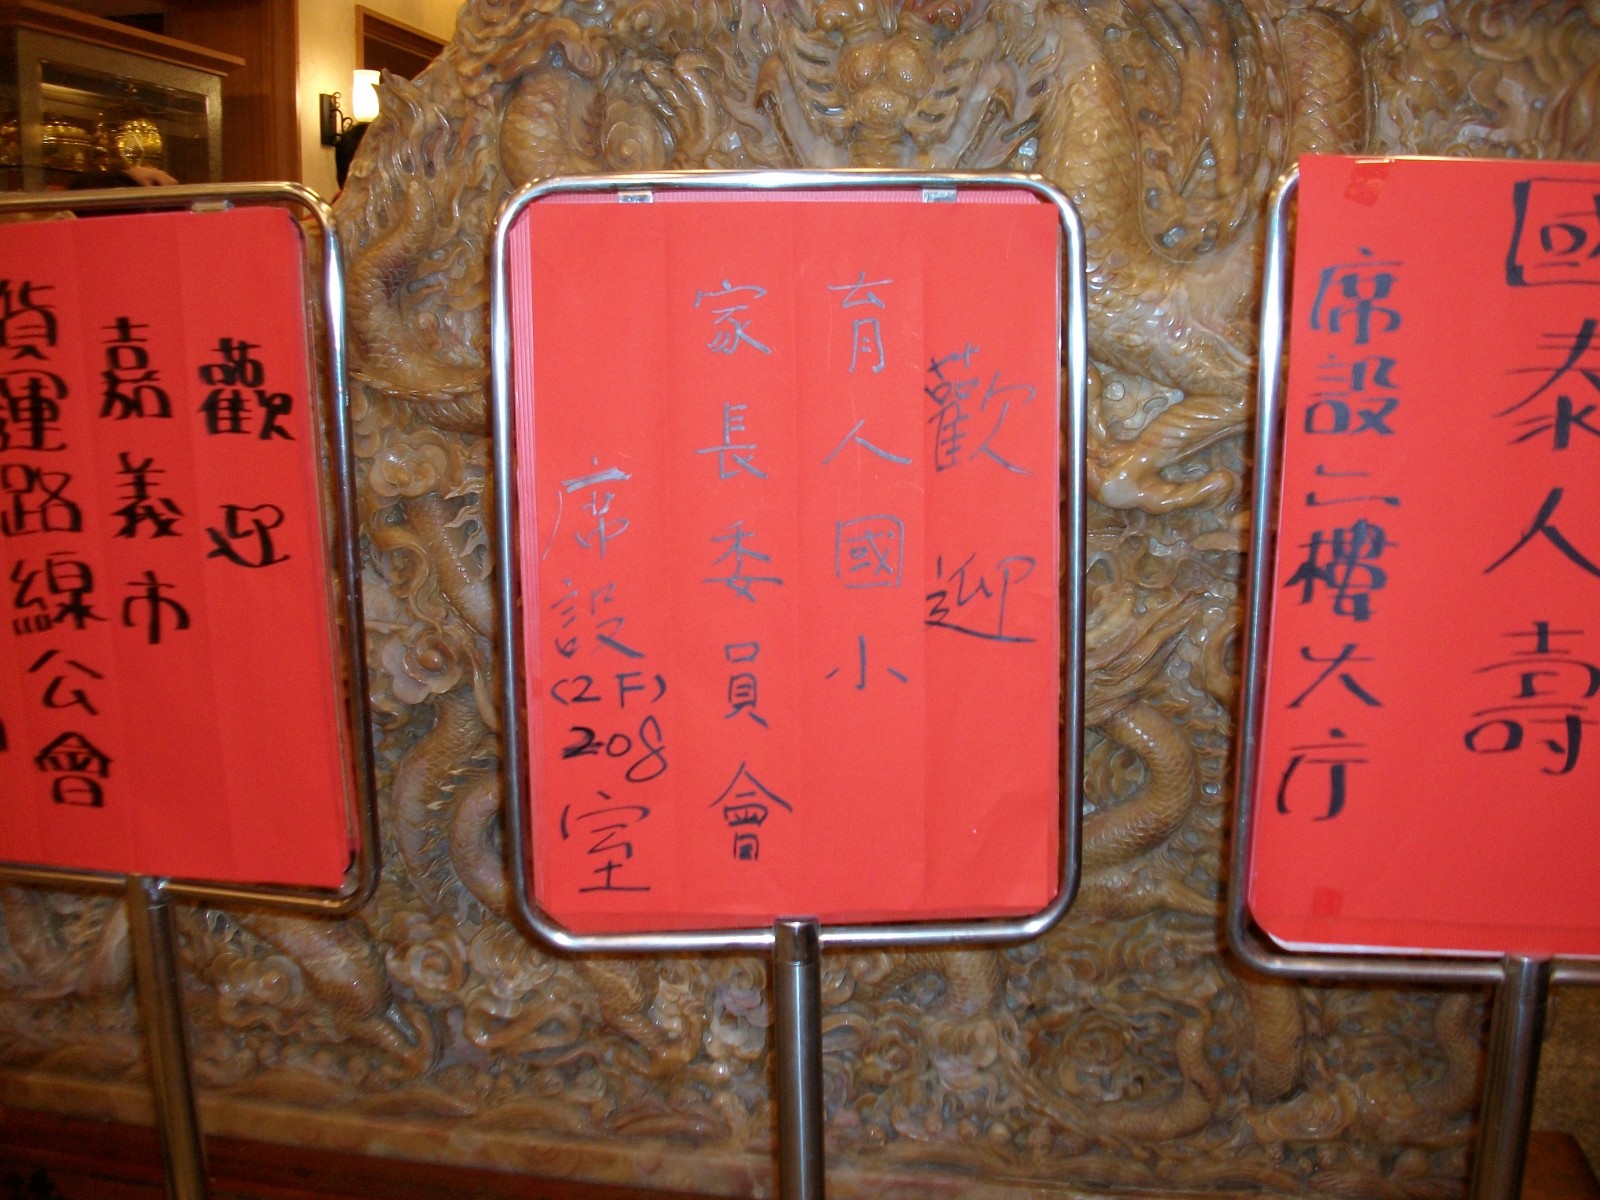 歡迎
嘉義市
貨運路線公會
歡迎
育人國小
家長委員會
席設(2F)208室
國泰人壽
席設二樓大厅